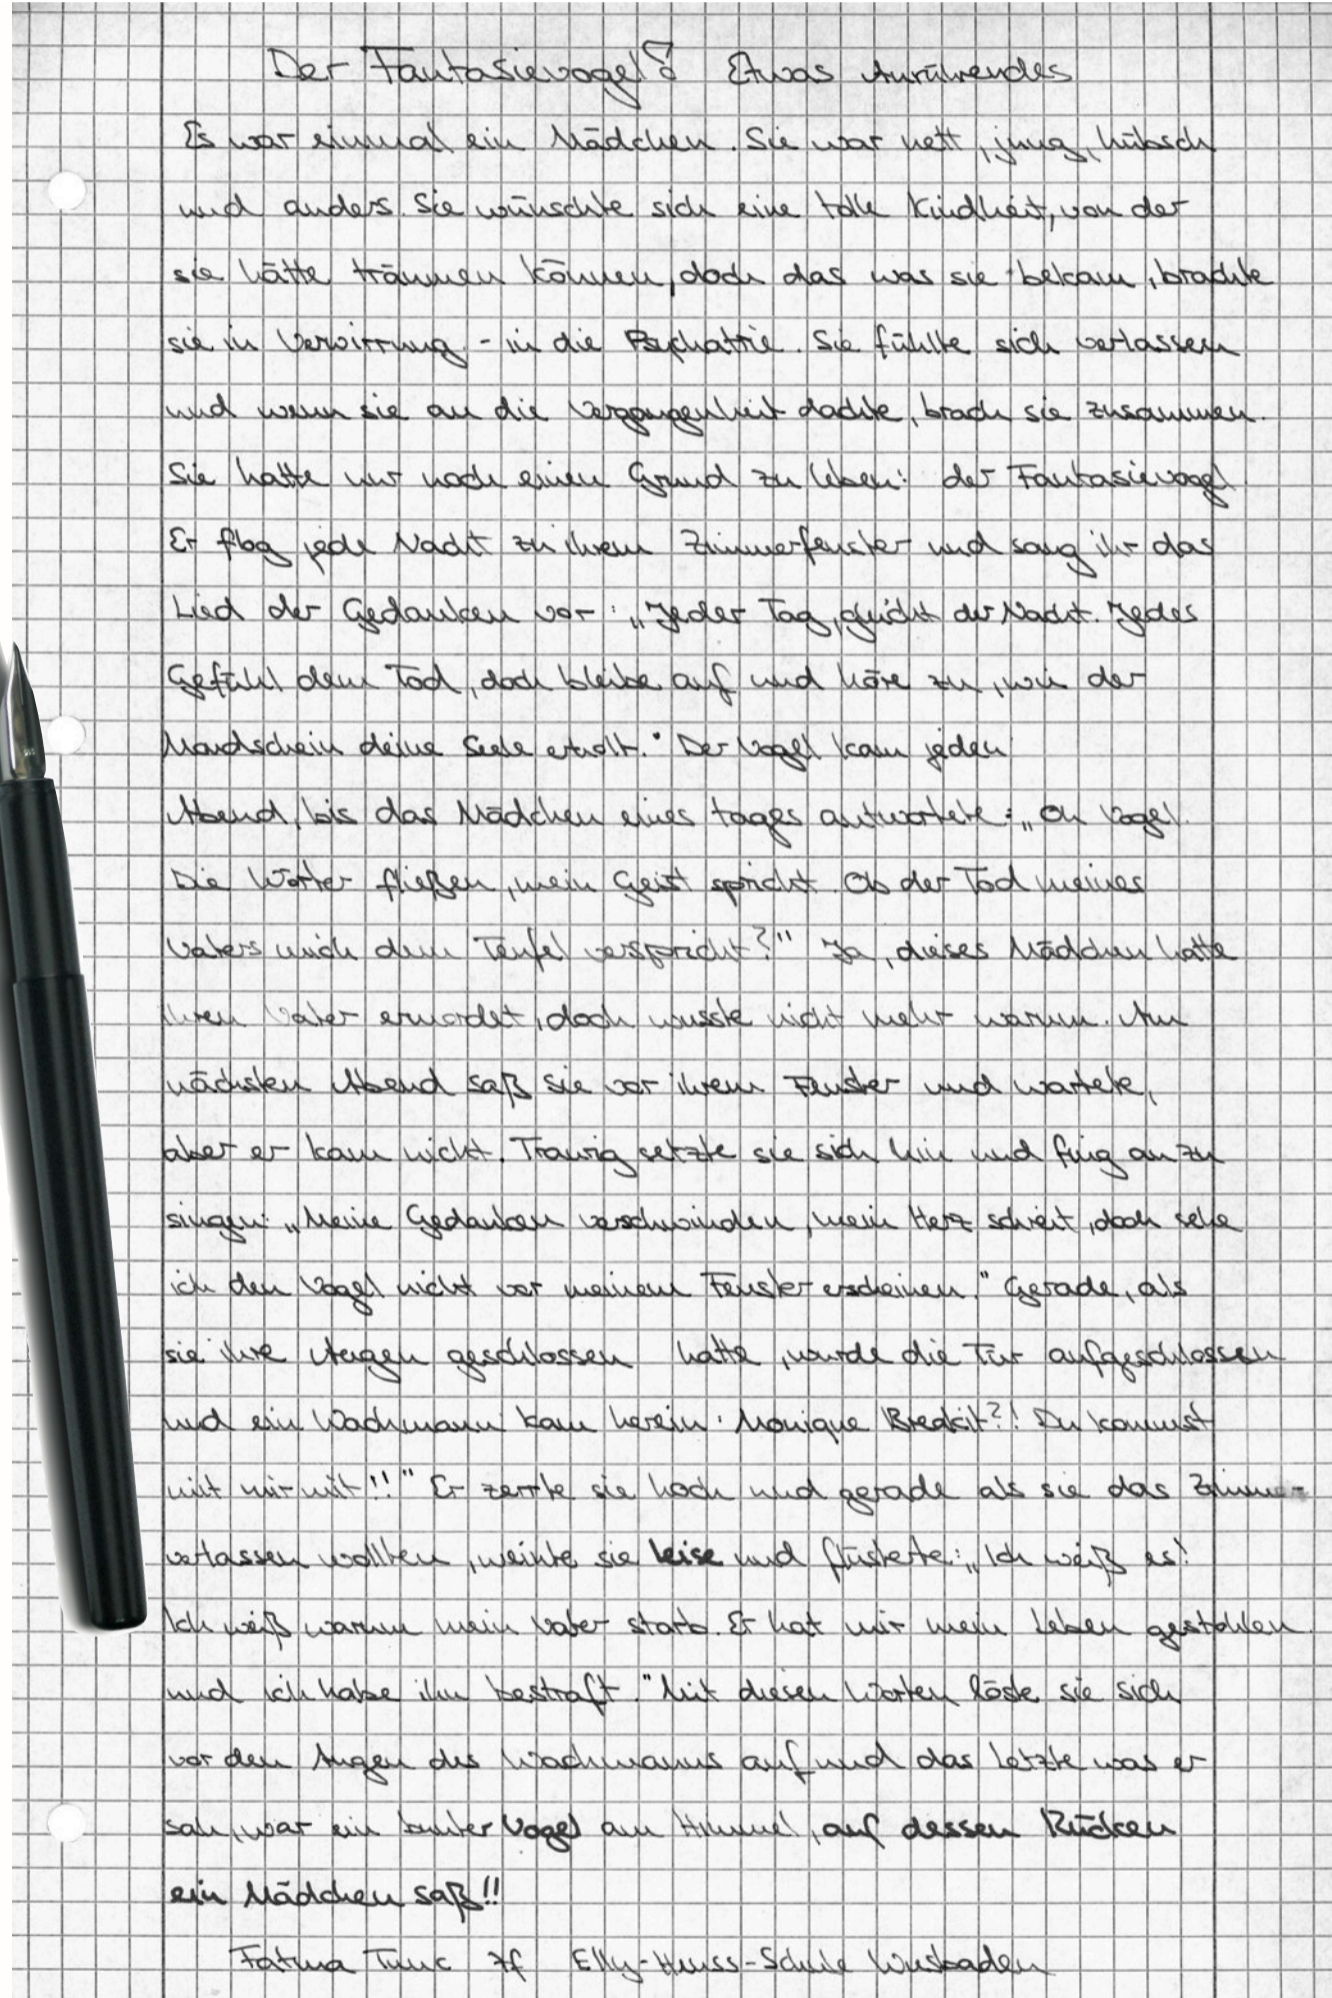 Der Fantasievogel? Etwas Anrührendes
Es war einmal ein Mädchen. Sie war nett, jung, hübsch
und anders. Sie wünschte sich eine tolle Kindheit, von der
sie hätte träumen können, doch das was sie bekam, brachte
sie in Verwirrung - in die Psychatrie. Sie fühlte sich verlassen
und wenn sie an die Vergangenheit dachte, brach sie zusammen.
Sie hatte nur noch einen Grund zu leben: der Fantasievogel
Er flog jede Nacht zu ihrem Zimmerfenster und sang ihr das
Lied der Gedanken vor: „Jeder Tag, gleicht der Nacht. Jedes
Gefühl dem Tod, doch bleibe auf und höre zu, wie der
Mondschein deine Seele erholt." Der Vogel kam jeden
Abend, bis das Mädchen eines tages antwortete: „Oh Vogel.
Die Wörter fließen, mein Geist spricht. Ob der Tod meines
Vaters mich dem Teufel verspricht?" Ja, dieses Mädchen hatte
ihren Vater ermordet, doch wusste nicht mehr warum. Am
nächsten Abend saß sie vor ihrem Fenster und wartete,
aber er kam nicht. Traurig setzte sie sich hin und fing an zu
singen: „Meine Gedanken verschwinden, mein Herz schreit, doch sehe
ich den Vogel nicht vor meinem Fenster erscheinen." Gerade, als
sie ihre Augen geschlossen hatte, wurde die Tür aufgeschlossen
und ein Wachmann kam herein: Monique Breakit?! Du kommst
mit mir mit!!" Er zerrte sie hoch und gerade als sie das Zimmer
verlassen wollten, weinte sie leise und flüsterte: „Ich weiß es!
Ich weiß warum mein Vater starb. Er hat mir mein Leben gestohlen
und ich habe ihn bestraft." Mit diesen Worten löste sie sich
vor den Augen des Wachmanns auf und das Letzte was er
sah, war ein bunter Vogel am Himmel, auf dessen Rücken
ein Mädchen saß!!
Fatma Tunc 7f Elly-Heuss-Schule Wiesbaden